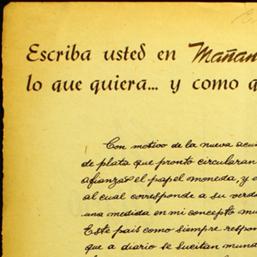 Escriba usted en Mañan
lo que quiera... y como q
Con motivo de la nueva acu
de plata que pronto circularan
afianzar el papel moneda, y e
al cual corresponde a su verda
una medida en mi concepto mu
Este país como siempre respon
que a diario se sucitan mund